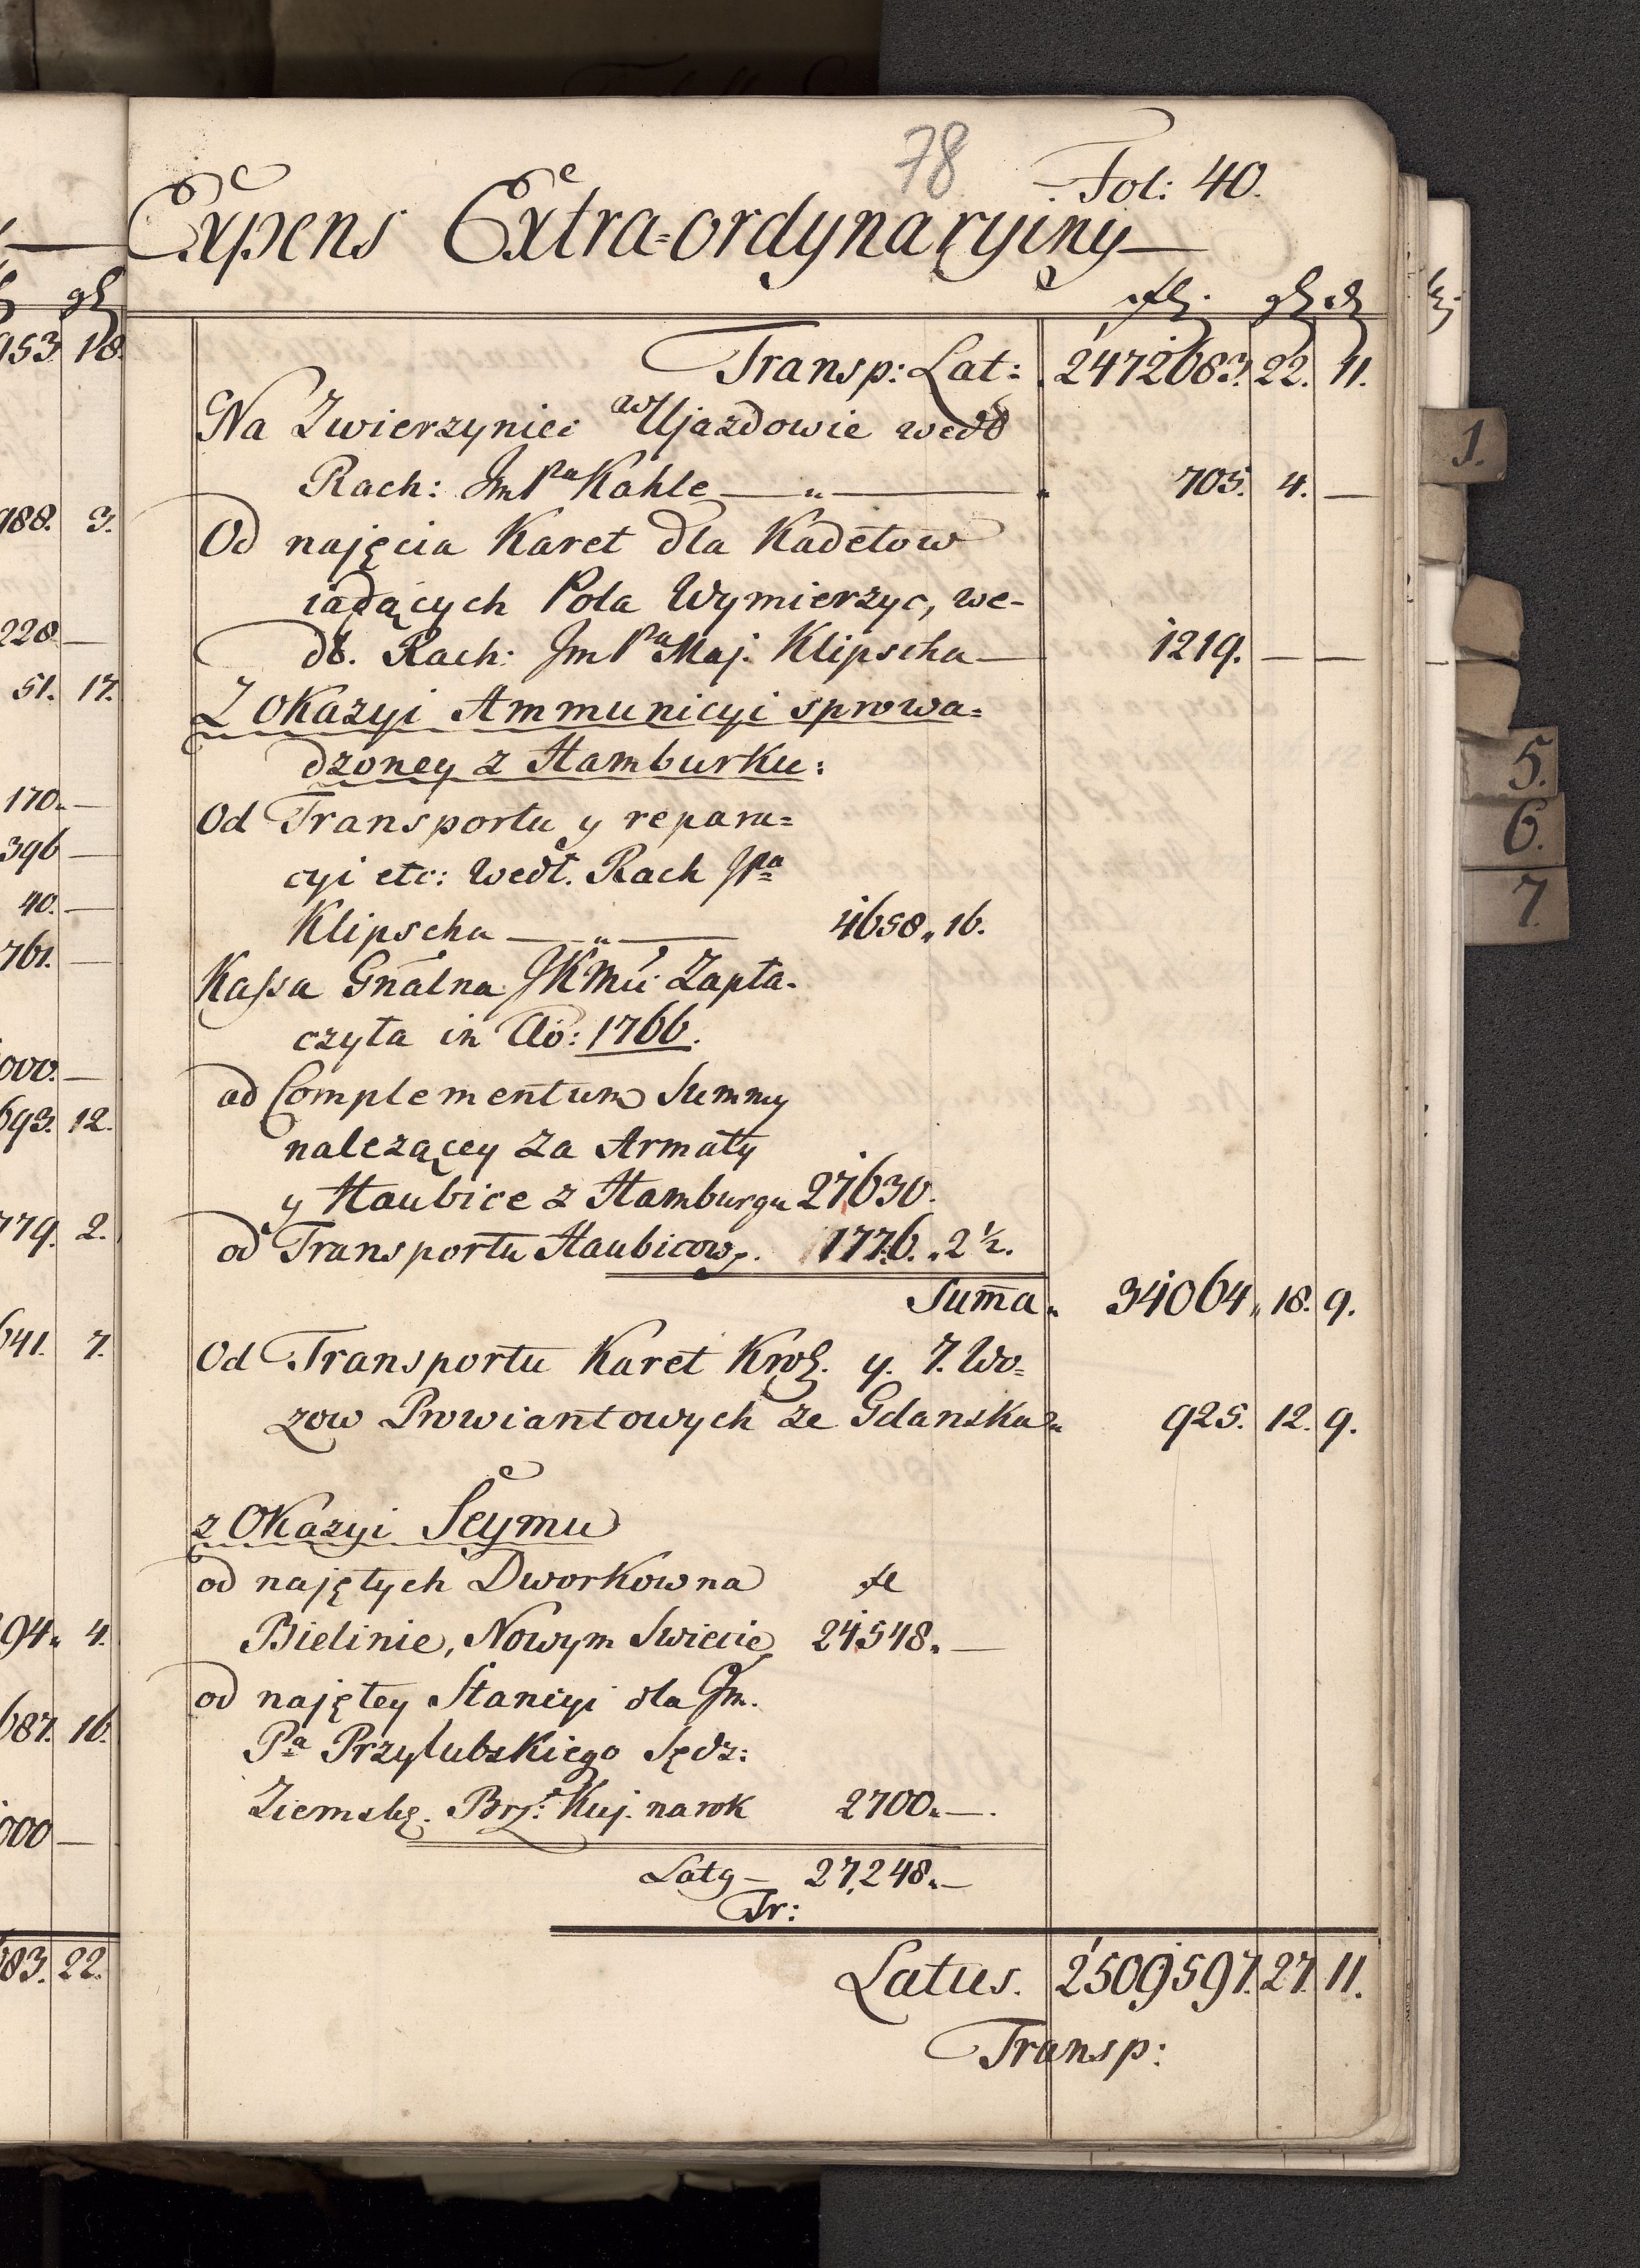 78
Fol: 40.
Expens Extra-ordynaryiny
fl. gl d
Transp: Lat: 2472683. 22. 11.
Na Zwierzyniec w Ujazdowie wedł
Rach: JmPa Kahle — " — 705. 4. —
Od najęcia Karet dla Kadetow
iadących Pola Wymierzyc, we-
dł. Rach: JmPa Maj. Klipscha — 1219. — —
Z Okazyi Ammunicyi sprowa=
dzoney z Hamburku:
Od Transportu y repara=
cyi etc: wedł. Rach JPa
Klipscha — " — 4658 " 16.
Kassa Gnalna JKMci Zapła-
czyła in Ao: 1766.
ad Complementum Summy
należącey za Armaty
y Haubice z Hamburgu 27630.
od Transportu Haubicow. 1776. " 2 ½.
Suma " 34064 " 18. 9.
Od Transportu Karet Krol. y. 7. Wo=
zow Prowiantowych ze Gdanska " 925. 12. 9.
z Okazyi Seymu
od najętych Dworkow na fl
Bielinie, Nowym Swiecie 24548 " —
od najętey Stancyi dla Jm.
Pa Przyłubskiego Sędz:
Ziemskg. Brz: Kuj. na rok 2700 " —.
Laty — 27,248 " —
Tr:
Latus. 2509597. 27. 11.
Transp:
gl
953. 18.
988. 3.
228 —
51. 17.
170 " —
396 —
40. —
761. —
000. —
693. 12.
779. 2.
641. 7.
94 " 4.
687. 16.
000 —
83. 22.
1.
5.
6.
7.